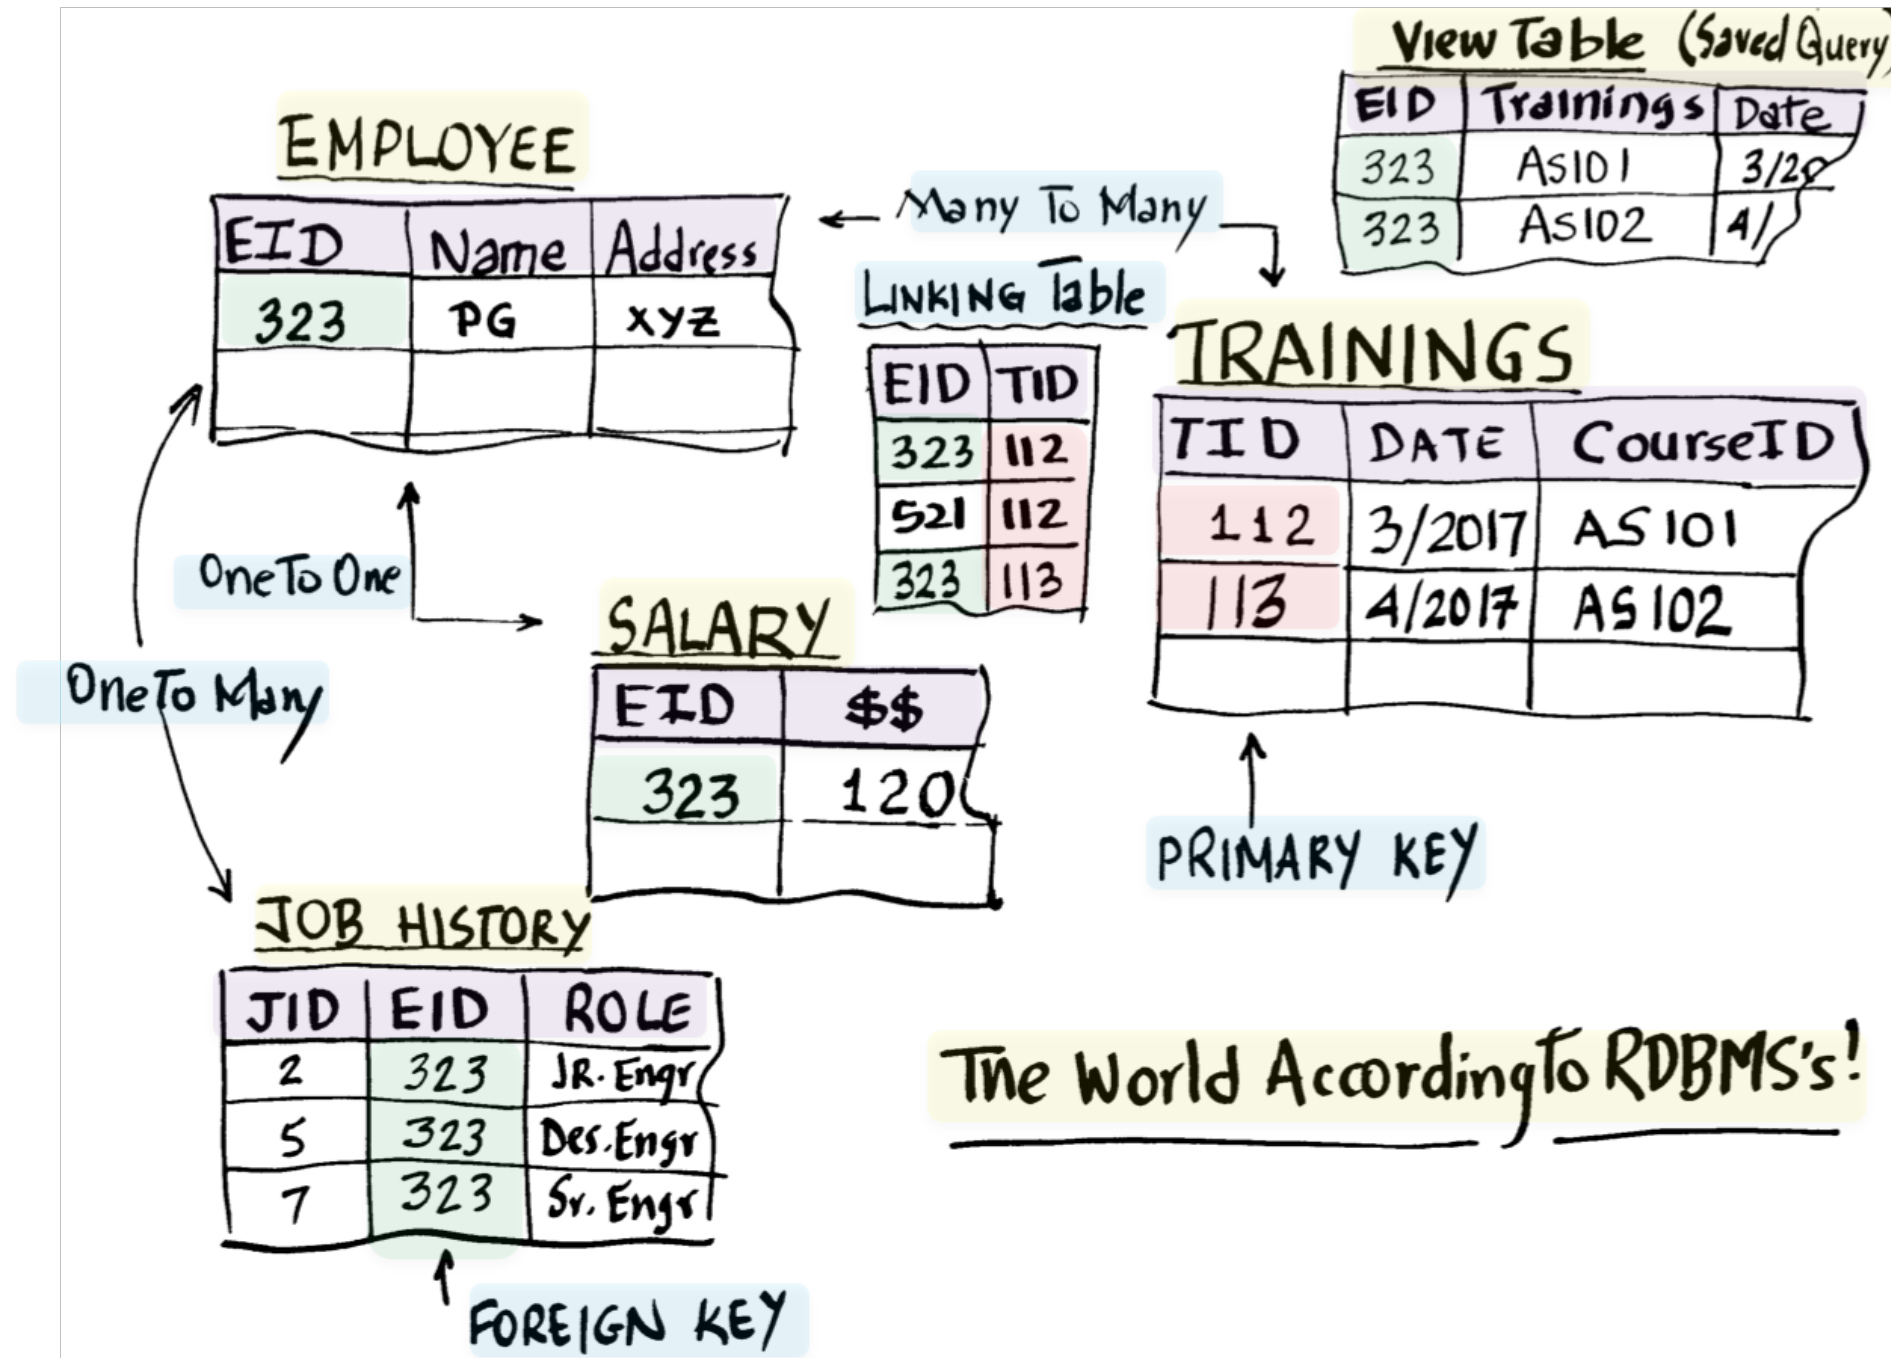 View Table (Saved Query)
EID Trainings Date
323 AS101 3/20
323 AS102 4/
EMPLOYEE
EID Name Address
323 PG XYZ
Many To Many
LINKING Table
EID TID
323 112
521 112
323 113
TRAININGS
TID DATE CourseID
112 3/2017 AS101
113 4/2017 AS102
PRIMARY KEY
One To One
One To Many
SALARY
EID $$
323 120
JOB HISTORY
JID EID ROLE
2 323 JR. Engr
5 323 Des. Engr
7 323 Sr. Engr
FOREIGN KEY
The World According To RDBMS's!